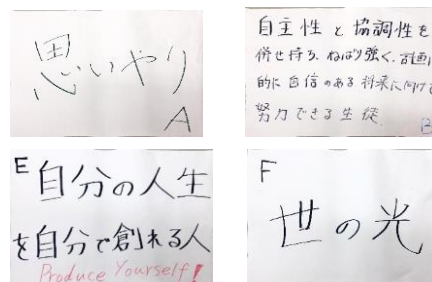 思いやり
A
自主性と協調性を
併せ持ち、ねばり強く、計画
的に自信のある将来に向けて
努力できる生徒
B
E
自分の人生
を自分で創れる人
Produce Yourself!
F
世の光